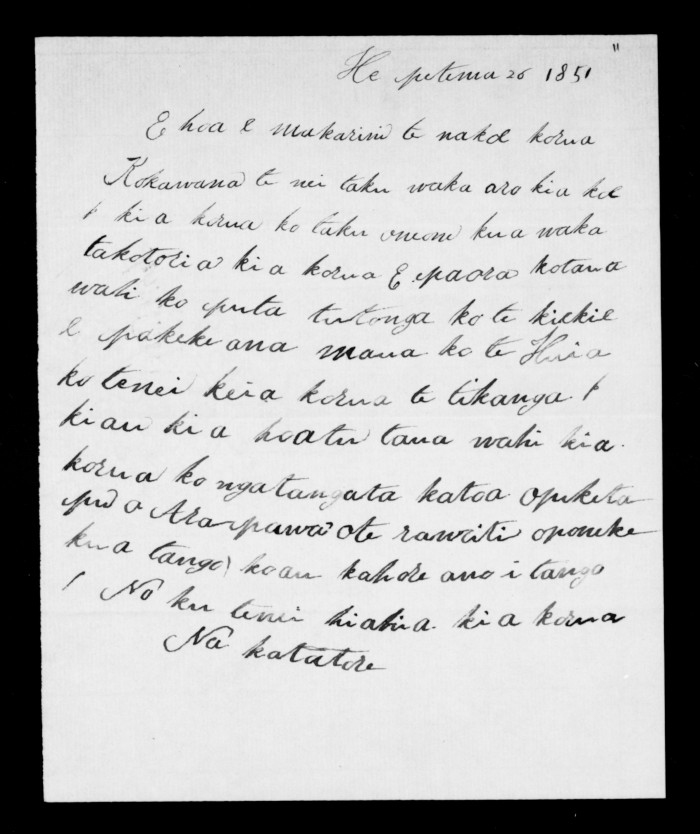 He petema 26 1851 "
E hoa e makarini te nakoe korua
Kokawana te nei taku waka aro kia koe
kia korua ko taku oneone kua waka
takotoria kia korua E paora kotana
wahi ko puta tutonga ko te kiekie
e pakeke ana maua ko te Huia
ko tenei keia korua te tikanga
kiau kia hoatu tana wahi kia
korua ko ngatangata katoa opiketa
pu o Araipawa ote rawiti oponeke
kua tango koau kahore ano i tango
No ku tenei hiahia kia korua
Na katatore